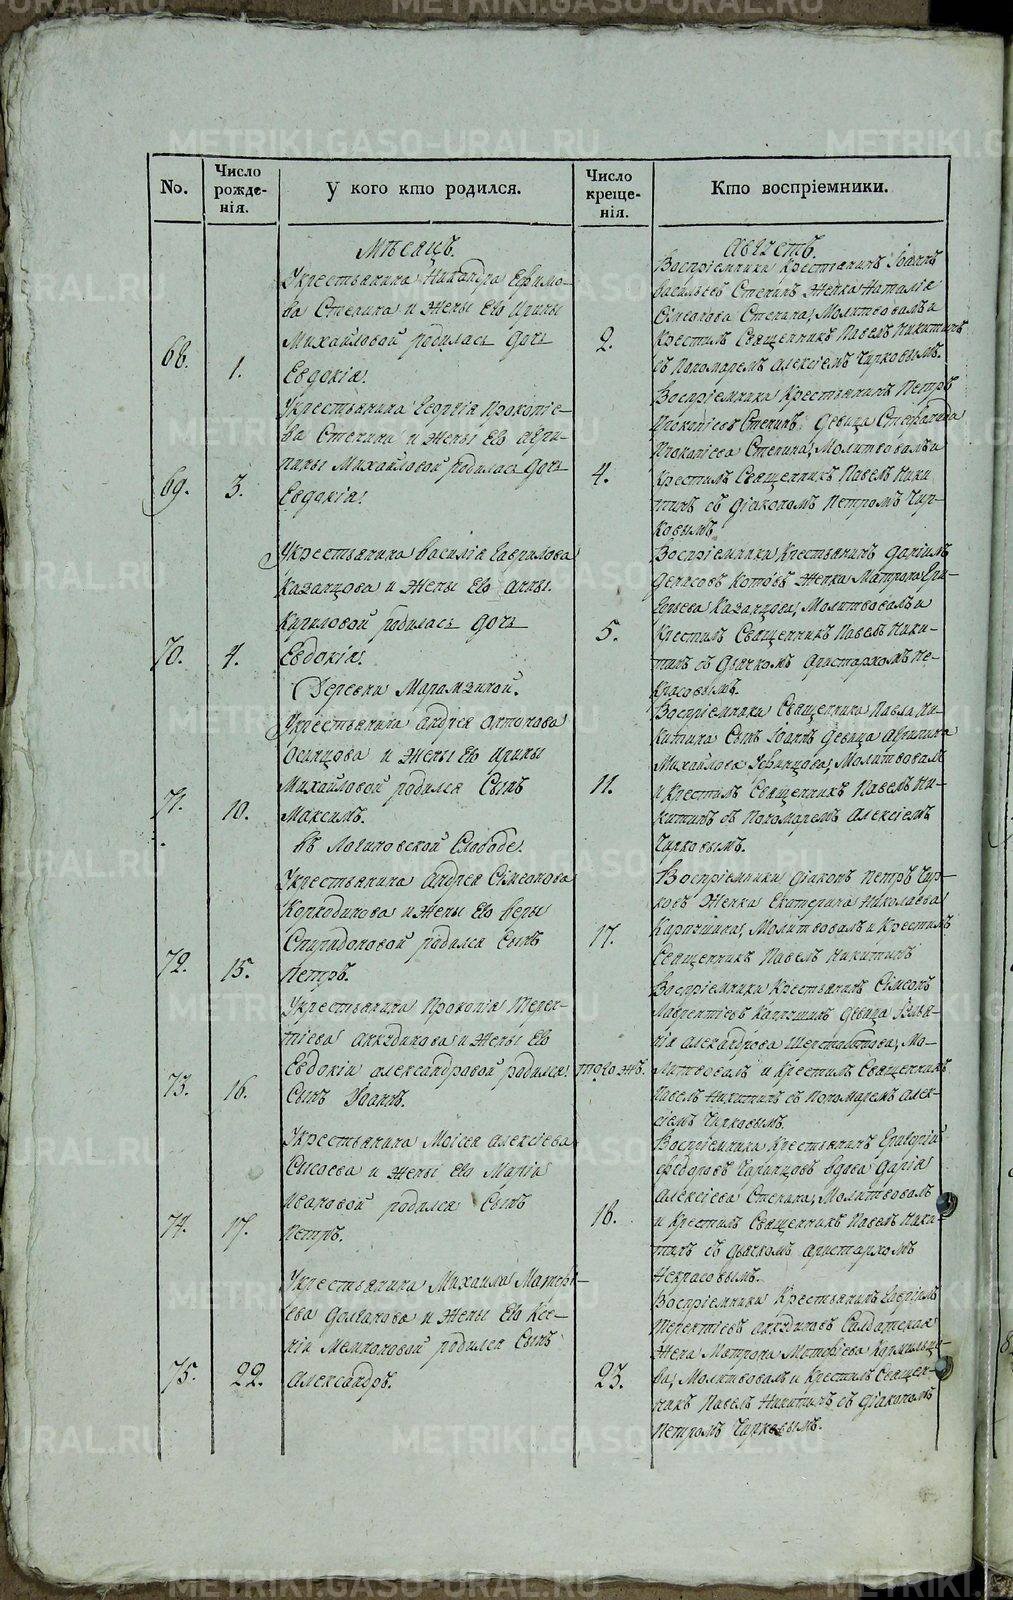 No.
Число рожденія.
У кого кто родился.
Число крещенія.
Кто воспріемники.
Мѣсяцъ.
Августъ.
68.
1.
У крестьянина Никандра Ефимо-
ва Степина и жены его Ирины
Михайловой родилась дочь
Евдокія.
2.
Воспріемники Крестьянинъ Іоаннъ
Васильевъ Степинъ Женка Наталія
Симеонова Степина, Молитвовалъ и
Крестилъ Священникъ Павелъ Никитинъ
съ Пономаремъ Алексіемъ Чирковымъ.
69.
3.
У крестьянина Георгія Прокопіе-
ва Степина и жены его Агри-
пины Михайловой родилась дочь
Евдокія.
4.
Воспріемники Крестьянинъ Петръ
Прокопіевъ Степинъ Девица Стефанида
Прокопіева Степина, Молитвовалъ и
Крестилъ Священникъ Павелъ Ники
тинъ съ Діакономъ Петромъ Чир-
ковымъ.
70.
4.
У крестьянина Василія Гаврилова
Казанцова и жены его Анны
Кириловой родилась дочь
Евдокія.
5.
Воспріемники Крестьянинъ Даніилъ
Денисовъ Котовъ Женка Матрона Гри-
горьева Казанцова, Молитвовалъ и
Крестилъ Священникъ Павелъ Ники-
тинъ съ Дьячкомъ Аристархомъ Не-
красовымъ.
Деревни Марамзиной.
71.
10.
У крестьянина Андрея Антонова
Осинцова и жены его Ирины
Михайловой родился Сынъ
Максимъ.
11.
Воспріемники Священника Павла Ни-
китина Сынъ Іоаннъ Девица Агрипина
Михайлова Молитвовалъ
и Крестилъ Священникъ Павелъ Ни-
китинъ съ Пономаремъ Алексіемъ
Чирковымъ.
въ Логиновской Слободе.
72.
15.
У крестьянина Андрея Симеонова
Коркодинова и жены его Веры
Спиридоновой родился Сынъ
Петръ.
17.
Воспріемники Діаконъ Петръ Чир-
ковъ Женка Екатерина Николаева
Карпишина, Молитвовалъ и Крестилъ
Священникъ Павелъ Никитинъ
73.
16.
У крестьянина Прокопія Терен-
тіева Анкудинова и жены его
Евдокіи Александровой родился
Сынъ Іоаннъ.
того жъ.
Воспріемники Крестьянинъ Симеонъ
Лаврентіевъ Карпишинъ Девица
Александрова Шерстобитова, Мо-
литвовалъ и Крестилъ Священникъ
Павелъ Никитинъ съ Пономаремъ Алек-
сіемъ Чирковымъ.
74.
17.
У крестьянина Моісея Алексіева
Сысоева и жены его Маріи
Ивановой родился Сынъ
Петръ.
18.
Воспріемники Крестьянинъ Григорій
Федоровъ Вдова Дарія
Алексіева Степина, Молитвовалъ
и Крестилъ Священникъ Павелъ Ники-
тинъ съ Дьячкомъ Аристархомъ
Некрасовымъ.
75.
22.
У крестьянина Михаила Матфі-
ева Долганова и жены его Ксе-
ніи родился Сынъ
Александръ.
23.
Воспріемники Крестьянинъ Гавріилъ
Терентіевъ Анкудиновъ Салдатская
Жена Матрона Матфіева Кокшарова,
Молитвовалъ и Крестилъ Священ-
никъ Павелъ Никитинъ съ Діакономъ
Петромъ Чирковымъ.